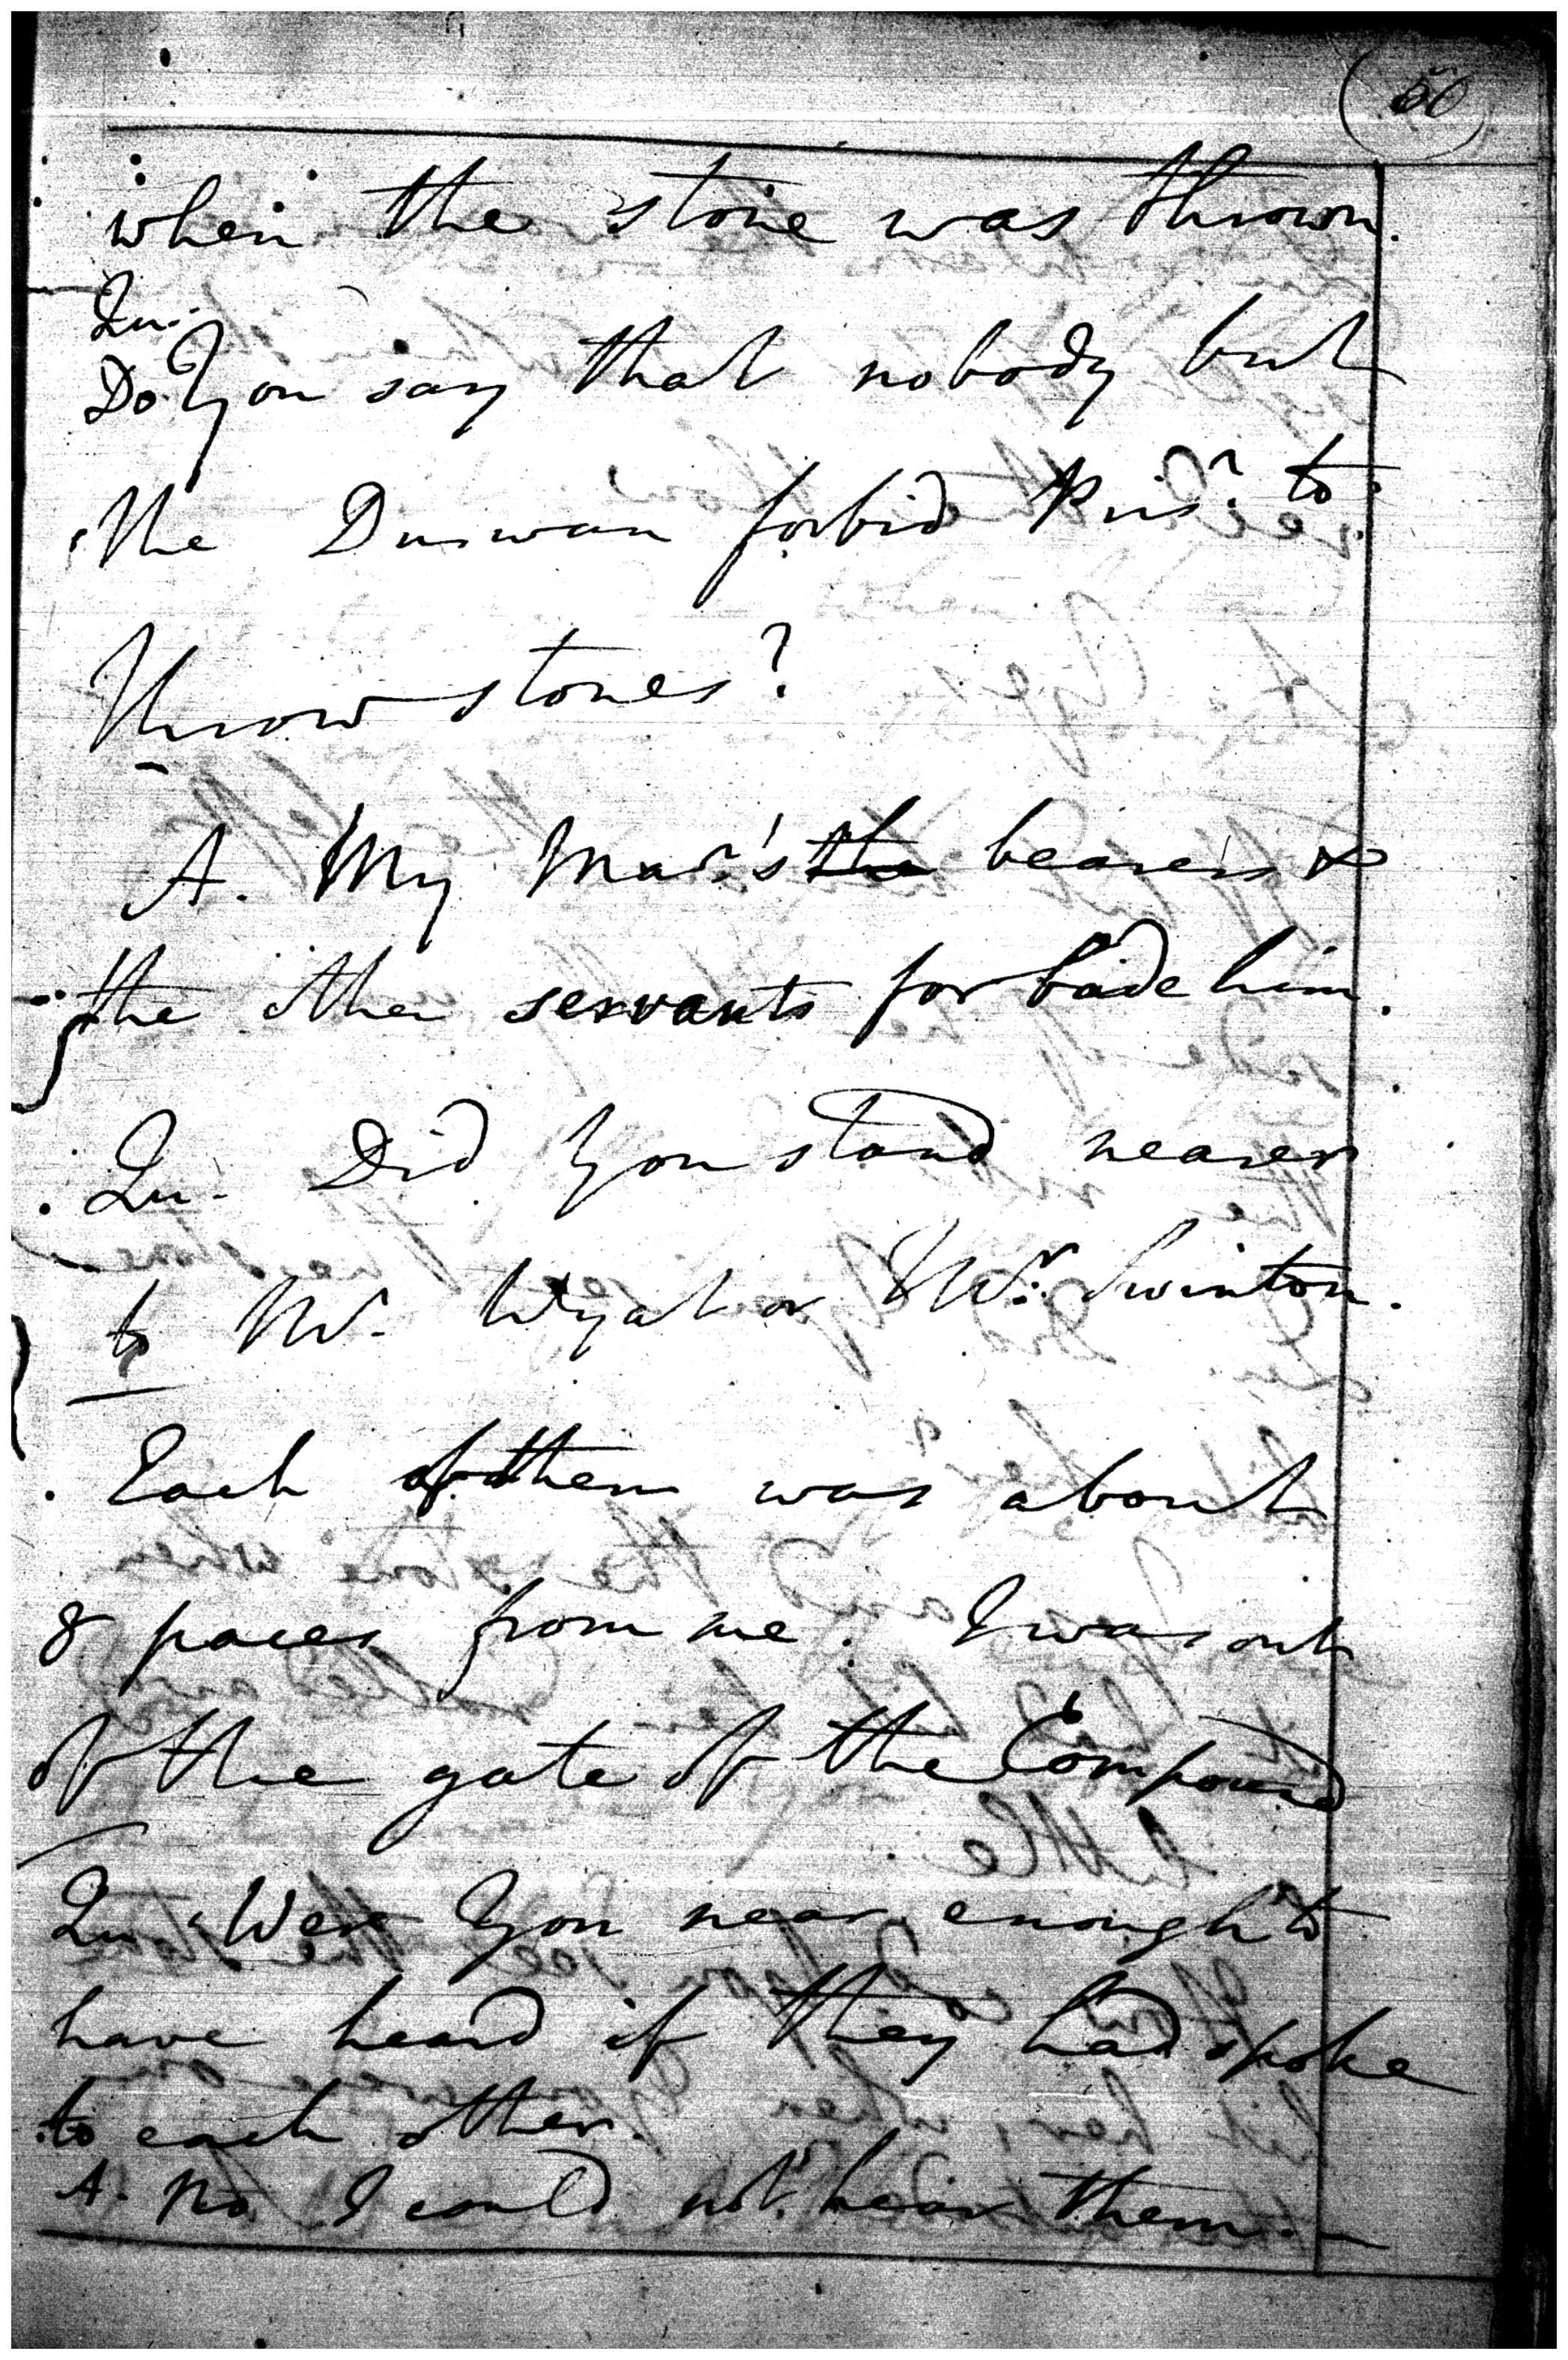 50
when the stone was thrown.
Qu.
Do you say that nobody but
the Durwan forbid Prisr. to
throw stones?
A. My Masr's the bearers &
the other servants forbade him.
Qu. Did you stand nearer
to Mr. Wyat or Mr. Swinton.
Each of them was about
8 paces from me. I was out
of the gate of the Compound
Qu. Were you near enough to
have heard if they had spoke
to each other.
A. No I could not hear them.